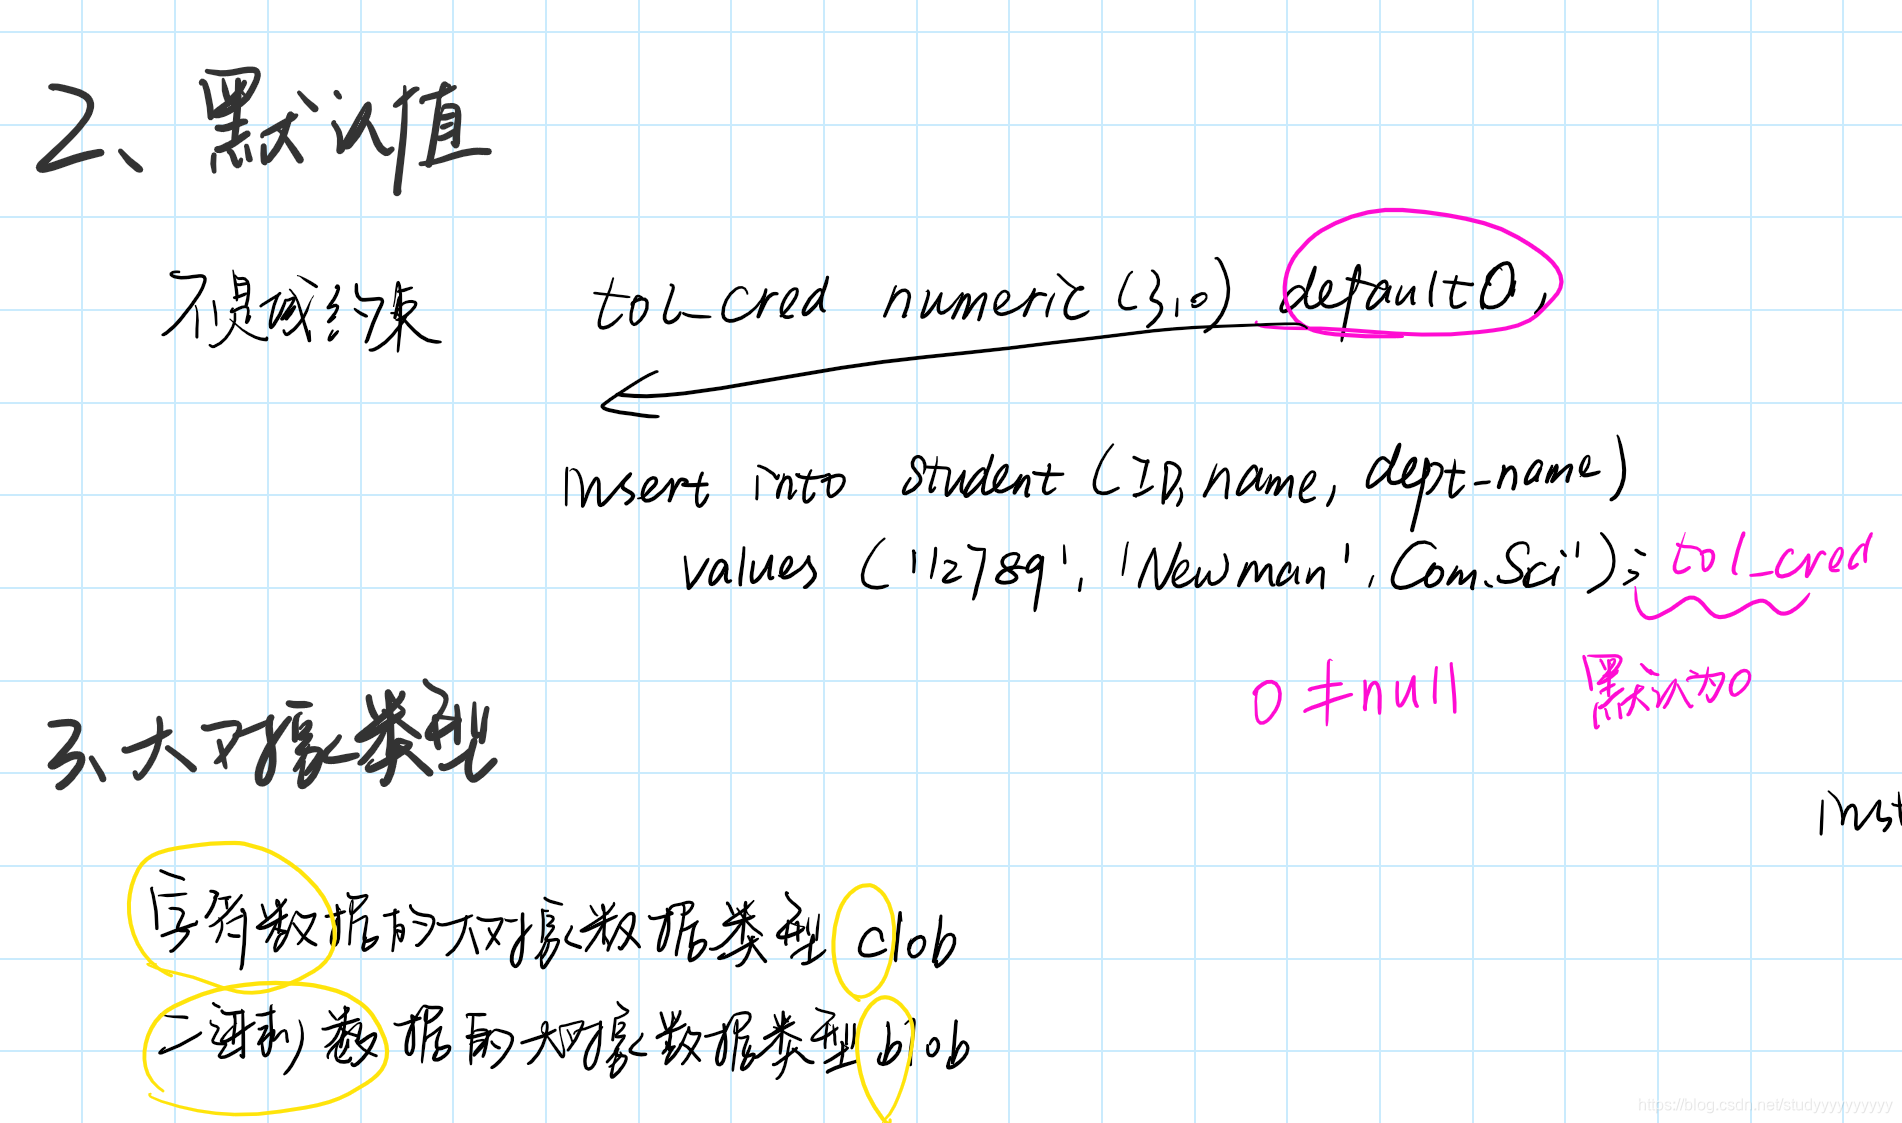 2、默认值
不是域约束 tol_cred numeric(3,0) default 0,
insert into student (ID, name, dept-name)
values ('12789', 'Newman', Com.Sci'); tol_cred
0≠null 默认为0
3、大对象类型
inst
字符数据的大对象数据类型 clob
二进制数据的大对象数据类型 blob
https://blog.csdn.net/studyyyyyyyyyy